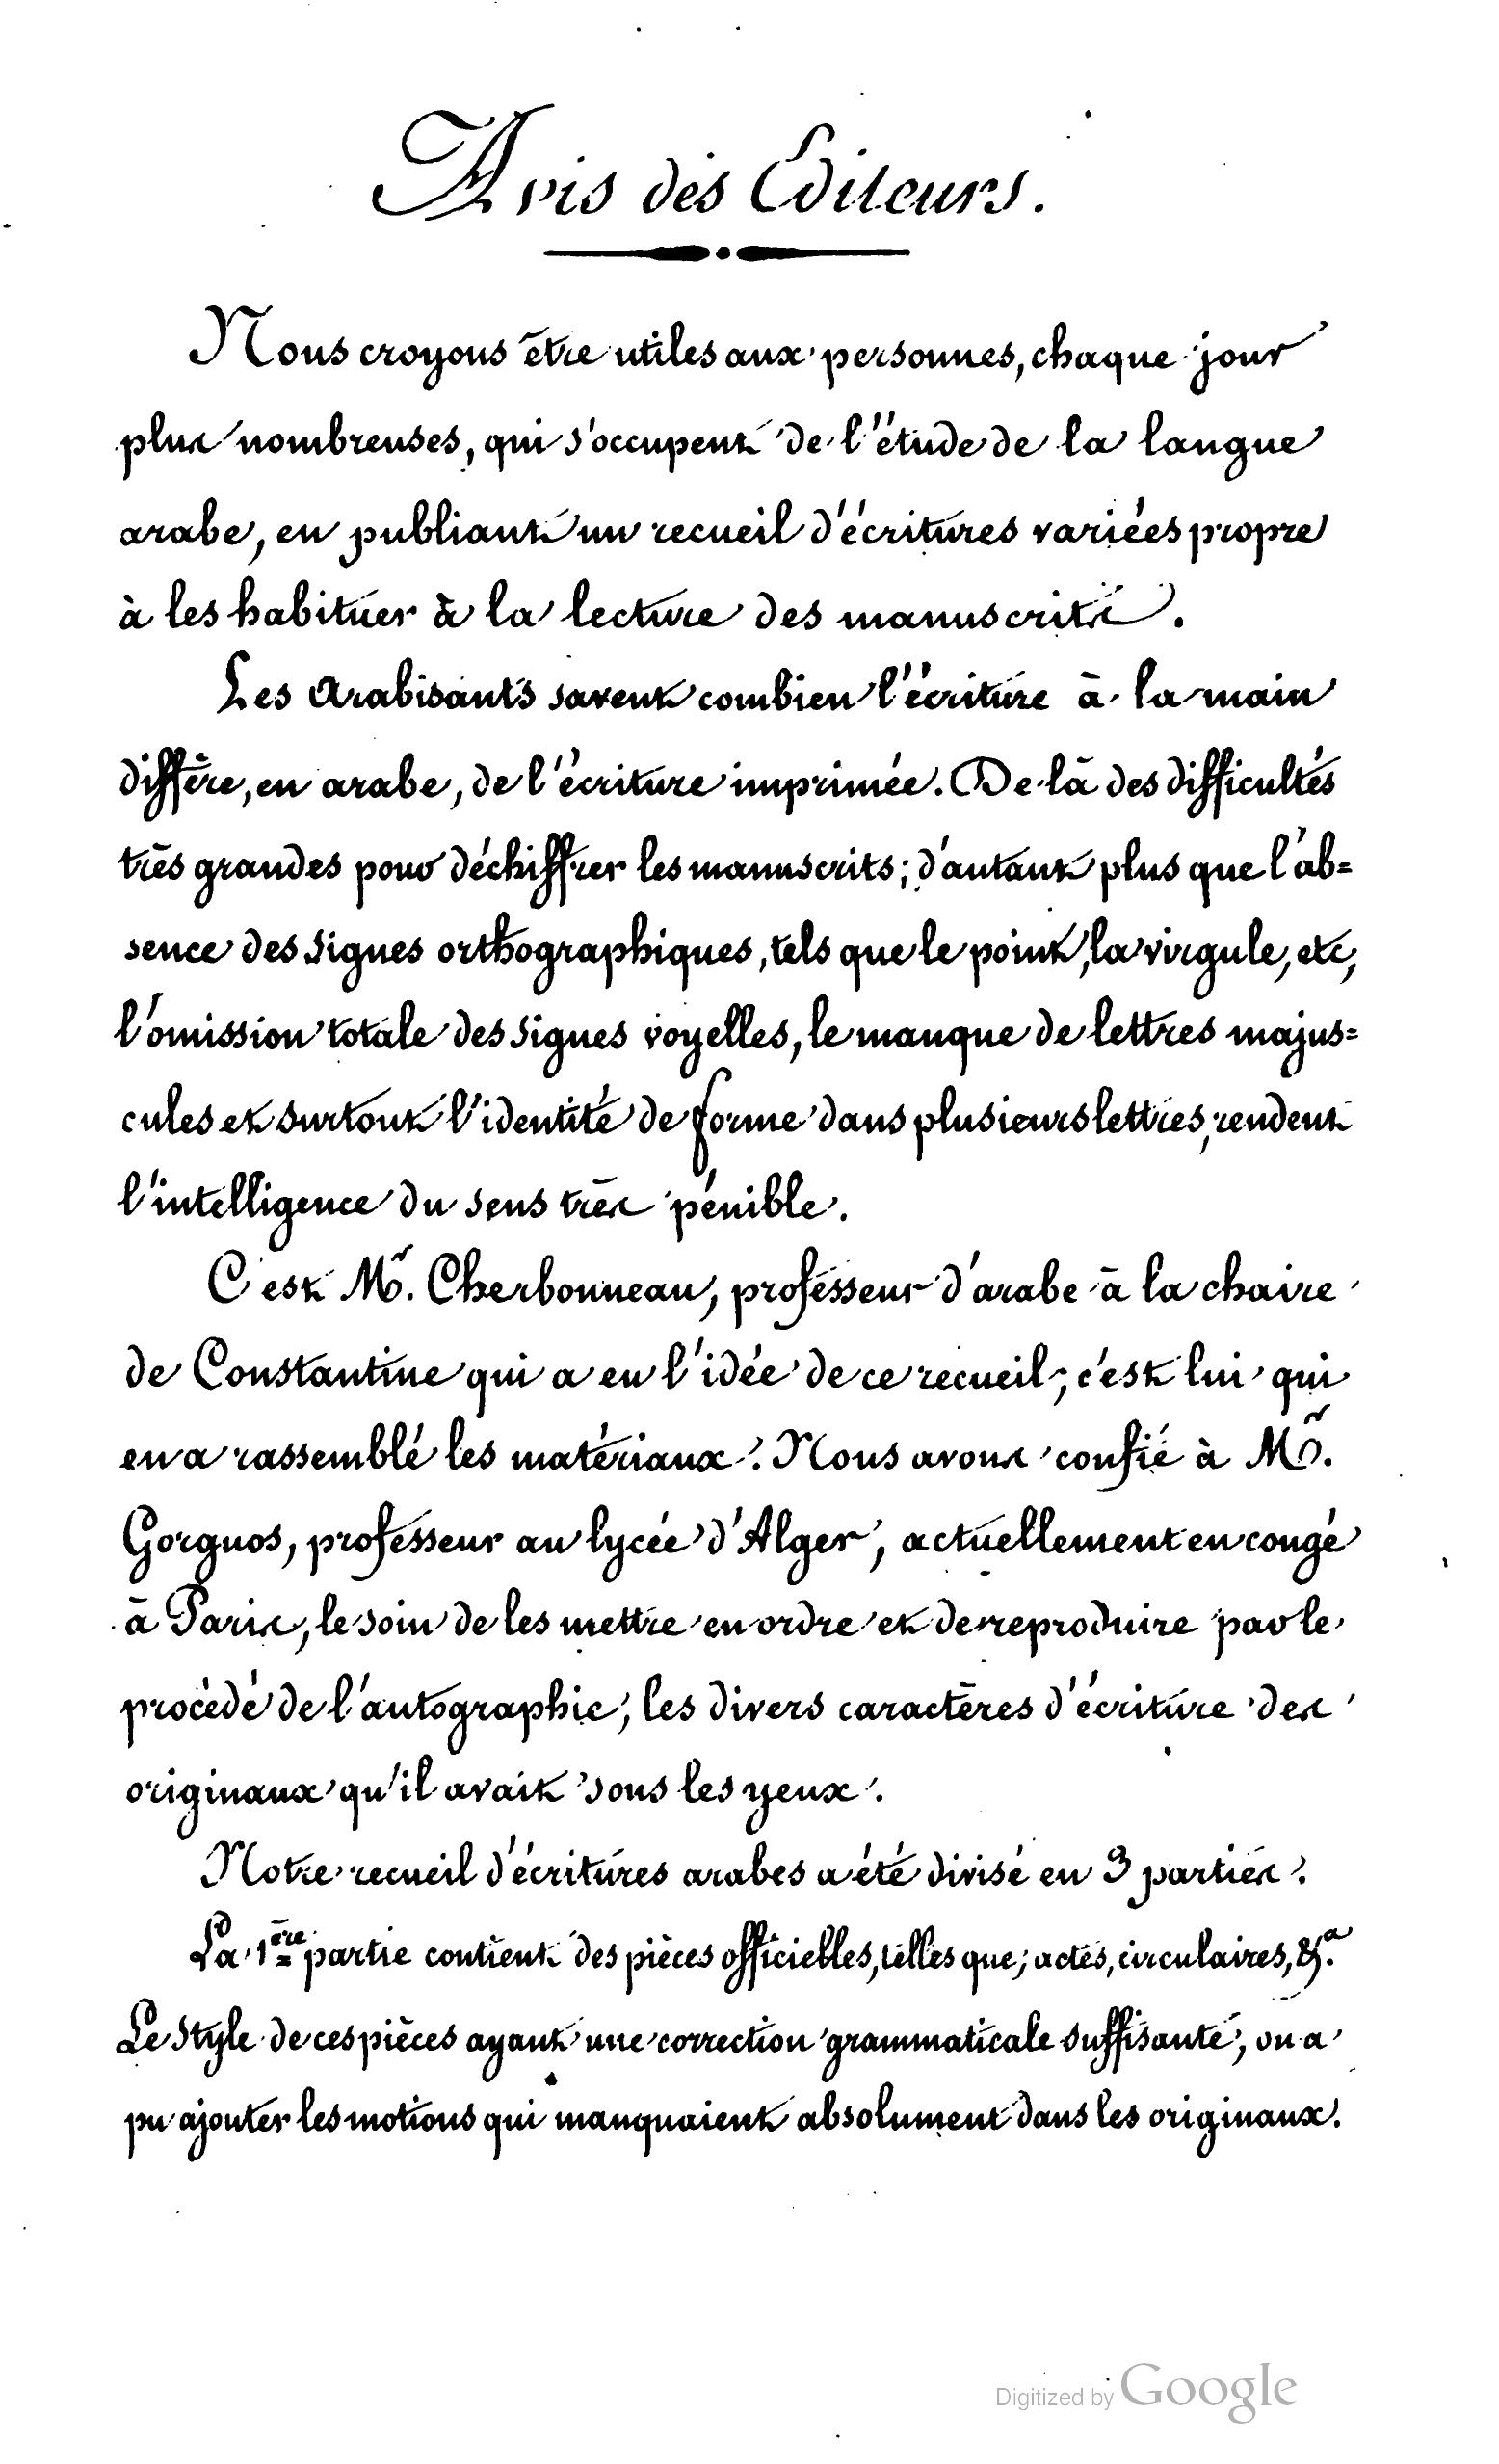 Avis des Editeurs.
Nous croyons être utiles aux personnes, chaque jour
plus nombreuses, qui s'occupent de l'étude de la langue
arabe, en publiant un recueil d'écritures variées propre
à les habituer à la lecture des manuscrits.
Les Arabisants savent combien l'écriture à la main
diffère, en arabe, de l'écriture imprimée. De là des difficultés
très grandes pour déchiffrer les manuscrits; d'autant plus que l'ab=
sence des signes orthographiques, tels que le point, la virgule, etc,
l'omission totale des signes voyelles, le manque de lettres majus=
cules et surtout l'identité de forme dans plusieurs lettres, rendent
l'intelligence du sens très pénible.
C'est Mr. Cherbonneau, professeur d'arabe à la chaire
de Constantine qui a eu l'idée de ce recueil; c'est lui qui
en a rassemblé les matériaux. Nous avons confié à Mr.
Gorguos, professeur au lycée d'Alger, actuellement en congé
à Paris, le soin de les mettre en ordre et de reproduire par le
procédé de l'autographie, les divers caractères d'écriture des
originaux qu'il avait sous les yeux.
Notre recueil d'écritures arabes a été divisé en 3 parties.
La 1ère partie contient des pièces officielles, telles que; actes, circulaires, &a.
Le style de ces pièces ayant une correction grammaticale suffisante, on a
pu ajouter les motions qui manquaient absolument dans les originaux.
Digitized by Google